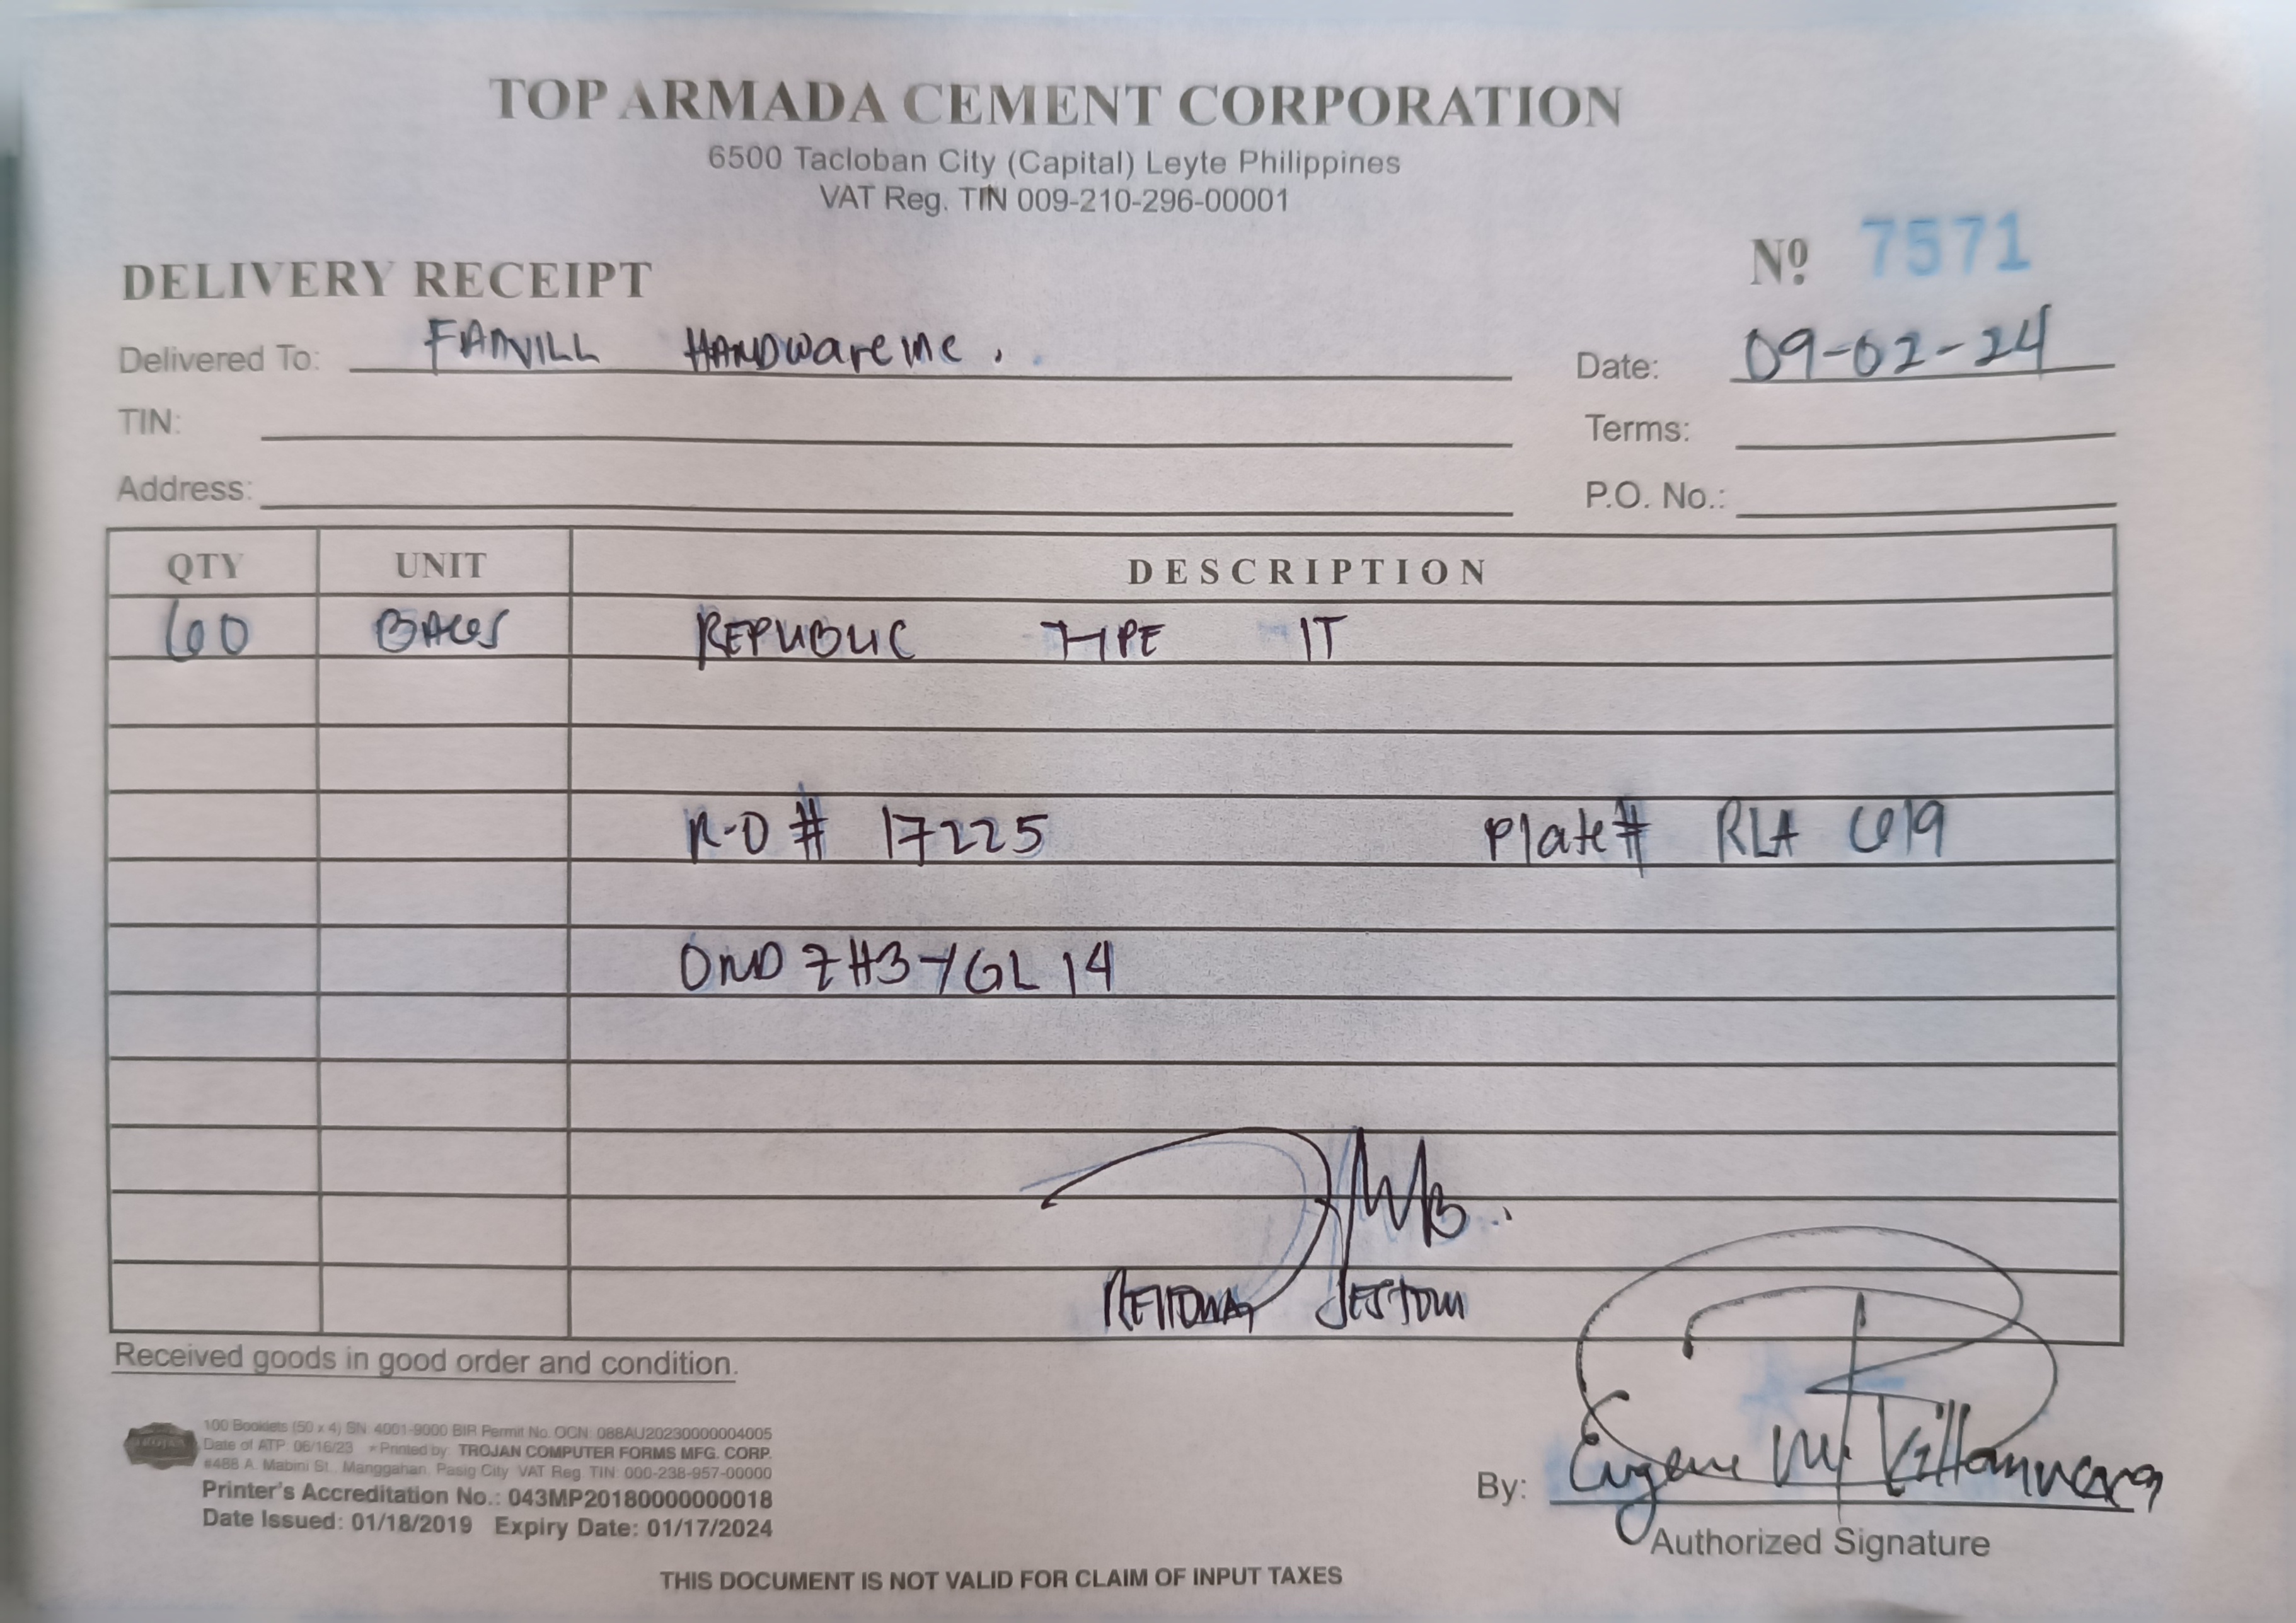 TOP ARMADA CEMENT CORPORATION
6500 Tacloban City (Capital) Leyte Philippines
VAT Reg. TIN 009-210-296-00001
DELIVERY RECEIPT
Nº 7571
Delivered To: FAMVILL HARDWare INC.
Date: 09-02-24
TIN:
Terms:
Address:
P.O. No.:
QTY UNIT DESCRIPTION
60 BAGS REPUBLIC TYPE 1T
R-O # 17225 Plate# RLA 619
7H3YGL14
Received goods in good order and condition.
100 Booklets (50 x 4) SN: 4001-9000 BIR Permit No. OCN: 088AU20230000004005
Date of ATP: 06/16/23 *Printed by: TROJAN COMPUTER FORMS MFG. CORP.
#488 A. Mabini St., Manggahan, Pasig City VAT Reg. TIN: 000-238-957-00000
Printer's Accreditation No.: 043MP20180000000018
Date Issued: 01/18/2019 Expiry Date: 01/17/2024
By: Eugene M. Villanueva
Authorized Signature
THIS DOCUMENT IS NOT VALID FOR CLAIM OF INPUT TAXES